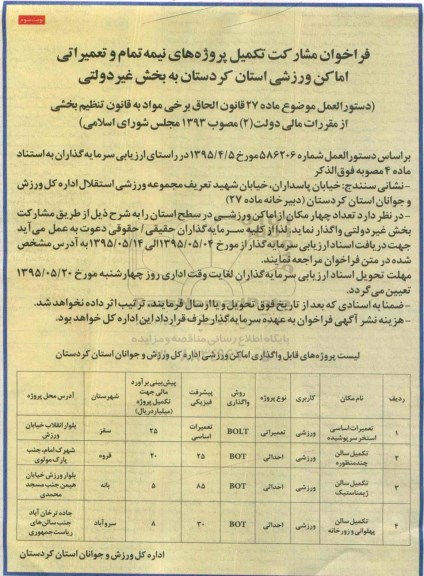 نوبت سوم
فراخوان مشارکت تکمیل پروژه‌های نیمه تمام و تعمیراتی
اماکن ورزشی استان کردستان به بخش غیردولتی
(دستورالعمل موضوع ماده ۲۷ قانون الحاق برخی مواد به قانون تنظیم بخشی
از مقررات مالی دولت (۲) مصوب ۱۳۹۳ مجلس شورای اسلامی)
براساس دستورالعمل شماره ۵۸۶۲۰۶ مورخ ۱۳۹۵/۴/۵ در راستای ارزیابی سرمایه‌گذاران به استناد
ماده ۴ مصوبه فوق‌الذکر
- نشانی سنندج: خیابان پاسداران، خیابان شهید تعریف مجموعه ورزشی استقلال اداره کل ورزش
و جوانان استان کردستان (دبیرخانه ماده ۲۷)
- در نظر دارد تعداد چهار مکان از اماکن ورزشی در سطح استان را به شرح ذیل از طریق مشارکت
بخش غیردولتی واگذار نماید. لذا از کلیه سرمایه‌گذاران حقیقی / حقوقی دعوت به عمل می‌آید
جهت دریافت اسناد ارزیابی سرمایه‌گذار از مورخ ۱۳۹۵/۰۵/۰۴ الی ۱۳۹۵/۰۵/۱۴ به آدرس مشخص
شده در متن فراخوان مراجعه نمایند.
مهلت تحویل اسناد ارزیابی سرمایه‌گذاران لغایت وقت اداری روز چهارشنبه مورخ ۱۳۹۵/۰۵/۲۰
تعیین می‌گردد.
- ضمنا به اسنادی که بعد از تاریخ فوق تحویل و یا ارسال فرمایند، ترتیب اثر داده نخواهد شد.
- هزینه نشر آگهی فراخوان به عهده سرمایه‌گذار طرف قرارداد این اداره کل خواهد بود.
پایگاه اطلاع رسانی مناقصه و مزایده
لیست پروژه‌های قابل واگذاری اماکن ورزشی اداره کل ورزش و جوانان استان کردستان
ردیف | نام مکان | کاربری | نوع پروژه | روش واگذاری | پیشرفت فیزیکی | پیش‌بینی برآورد مالی جهت تکمیل پروژه (میلیارد ریال) | شهرستان | آدرس محل پروژه
۱ | تعمیرات اساسی استخر سرپوشیده | ورزشی | تعمیراتی | BOLT | تعمیرات اساسی | ۲۵ | سقز | بلوار انقلاب خیابان ورزش
۲ | تکمیل سالن چندمنظوره | ورزشی | احداثی | BOT | ۲۵ | ۲۰ | قروه | شهرک امام، جنب پارک مولوی
۳ | تکمیل سالن ژیمناستیک | ورزشی | احداثی | BOT | ۸۵ | ۵ | بانه | بلوار ورزش خیابان هیمن جنب مسجد محمدی
۴ | تکمیل سالن پهلوانی و زورخانه | ورزشی | احداثی | BOT | ۳۰ | ۸ | سروآباد | جاده ترخان آباد جنب سالن‌های ریاست‌جمهوری
اداره کل ورزش و جوانان استان کردستان